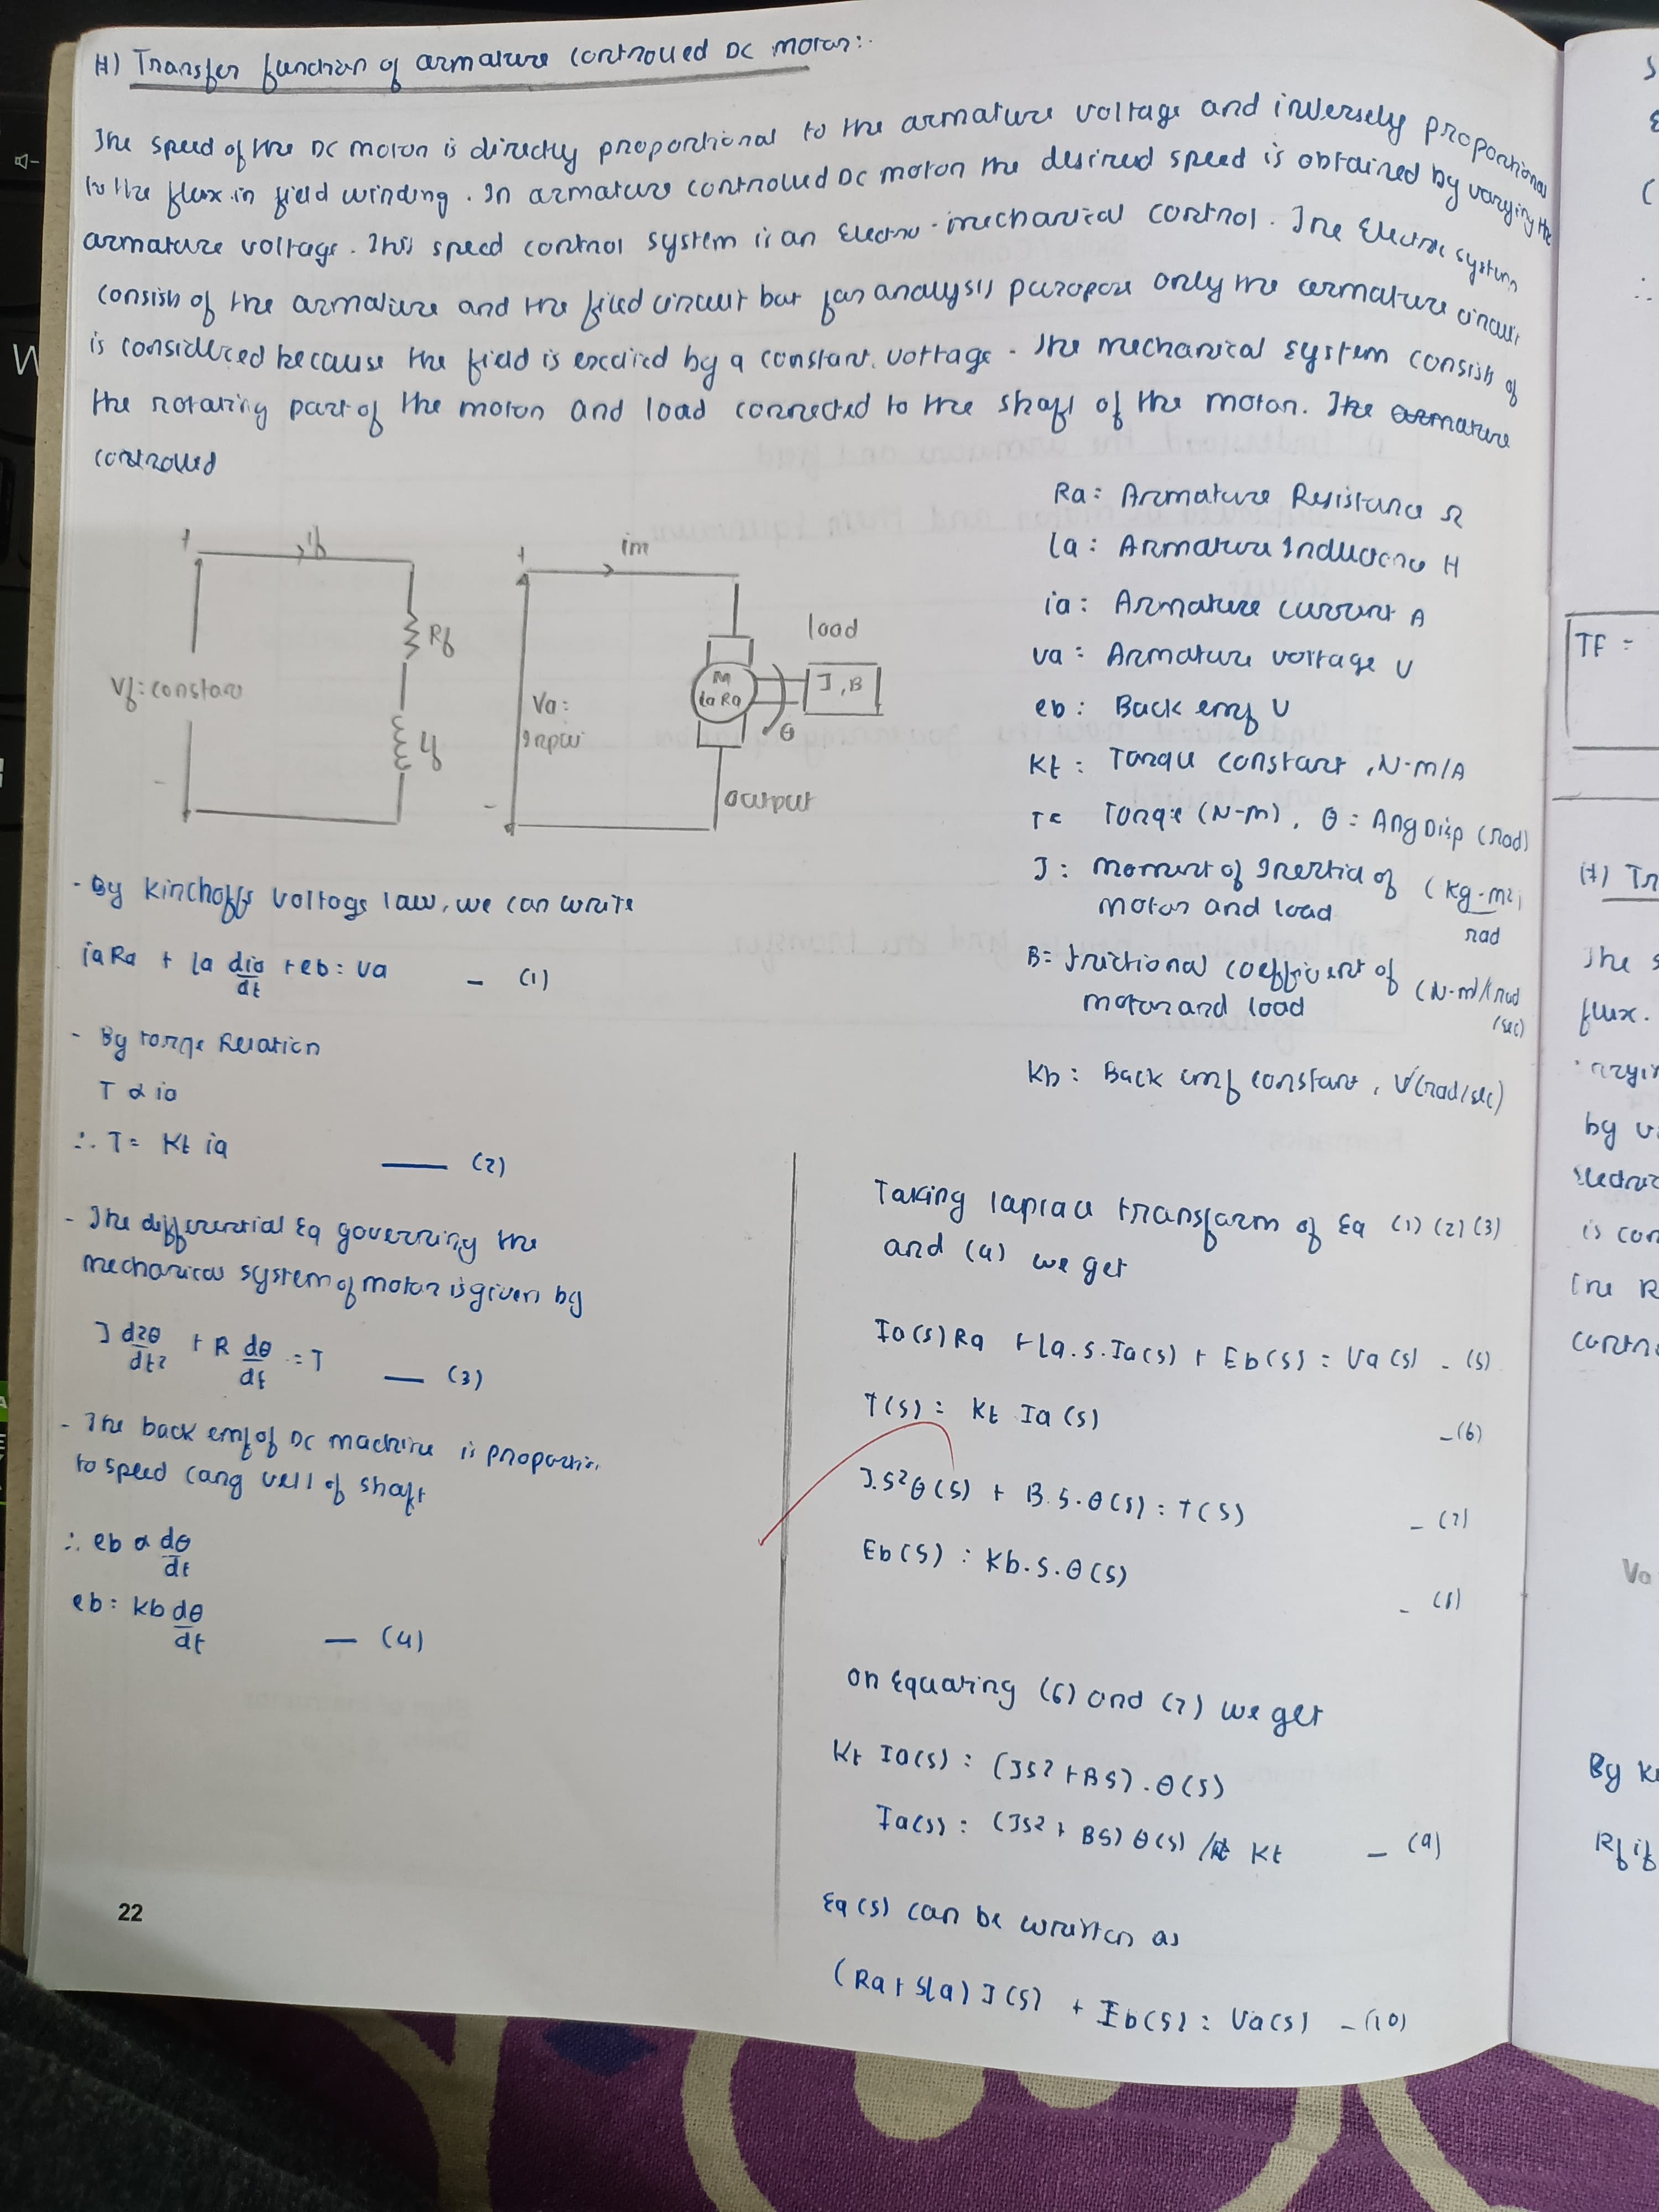 #) Transfer function of armature controlled DC motor:-
The speed of the DC motor is directly proportional to the armature voltage and inversely proportional
to the flux in field winding. In armature controlled DC motor the desired speed is obtained by varying the
armature voltage. This speed control system is an Electro-mechanical control. The Electric system
consists of the armature and the field circuit but for analysis purpose only the armature circuit
is considered because the field is excited by a constant voltage. The mechanical system consists of
the rotating part of the motor and load connected to the shaft of the motor. The armature
controlled
Ra: Armature Resistance Ω
La: Armature Inductance H
ia: Armature current A
va: Armature voltage V
eb: Back emf V
Kt: Torque constant, N-m/A
T= Torqe (N-m), θ = Ang Disp (rad)
J: Moment of Inertia of (kg-m2/rad
motor and load
B= frictional coefficient of (N-m)/(rad/sec)
motor and load
Kb: Back emf constant, V(rad/sec)
+ if
Rf
Vf: constant
Lf
-
+ im
load
M
La Ra
J,B
Va:
Input
θ
output
-
- By Kirchoffs voltage law, we can write
iaRa + La dia/dt + eb: va - (1)
- By torqe Relation
T α ia
∴ T= Kt ia — (2)
- The differential Eq governing the
mechanical system of motor is given by
J d2θ/dt2 + B dθ/dt = T — (3)
- The back emf of DC machine is proportion
to speed (ang vel) of shaft
∴ eb α dθ/dt
eb: Kb dθ/dt — (4)
Taking laplace transform of Eq (1) (2) (3)
and (4) we get
Ia(s)Ra + La.s.Ia(s) + Eb(s) = Va(s) - (5)
T(s) = Kt Ia(s) -(6)
J.s²θ(s) + B.s.θ(s) = T(s) - (7)
Eb(s) : Kb.s.θ(s) - (8)
on Equating (6) and (7) we get
Kt Ia(s) : (Js2+Bs).θ(s)
Ia(s) : (Js2 + Bs) θ(s) / Kt - (9)
Eq (5) can be written as
(Ra + sLa) I(s) + Eb(s) = Va(s) - (10)
22
S
(
TF =
#) Tr
The s
flux.
by v
is con
By K
Rf if
Va